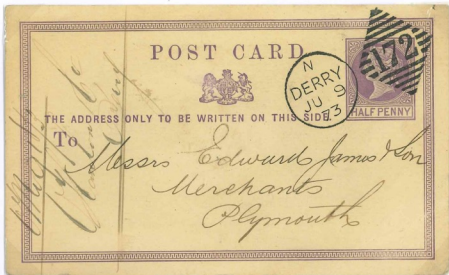 POST CARD
172
N
DERRY
JU 9
73
HALF PENNY
THE ADDRESS ONLY TO BE WRITTEN ON THIS SIDE
To
Messrs Edward James & Son
Merchants
Plymouth